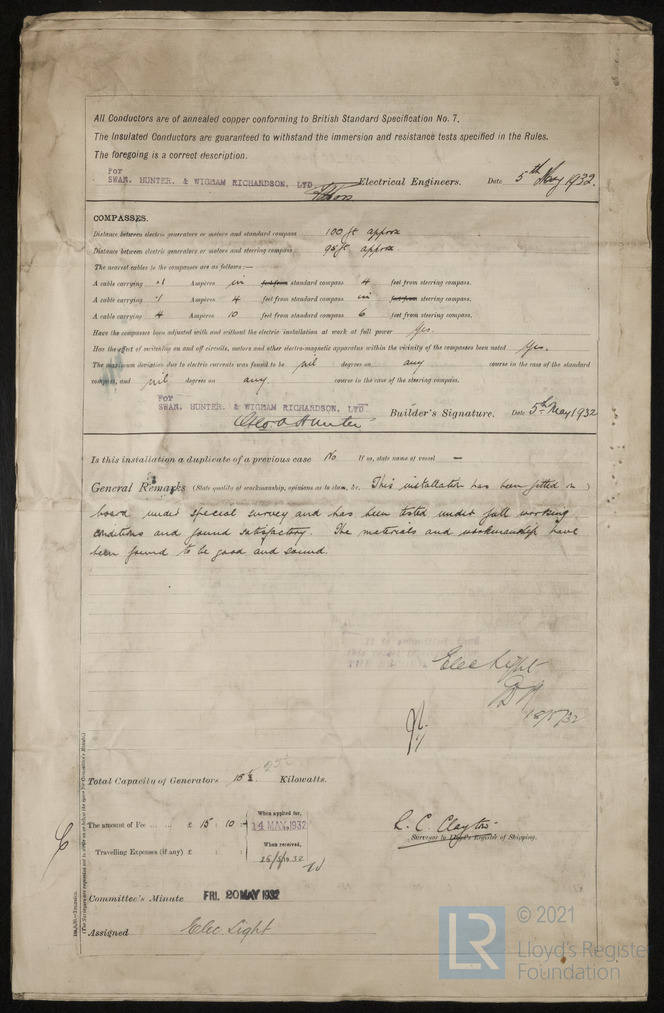 All Conductors are of annealed copper conforming to British Standard Specification No. 7.
The Insulated Conductors are guaranteed to withstand the immersion and resistance tests specified in the Rules.
The foregoing is a correct description.
For
SWAN, HUNTER, & WIGHAM RICHARDSON, LTD Electrical Engineers. Date 5th May 1932.
COMPASSES.
Distance between electric generators or motors and standard compass 100 ft approx
Distance between electric generators or motors and steering compass 95 ft approx
The nearest cables to the compasses are as follows:—
A cable carrying .1 Ampères in feet from standard compass 4 feet from steering compass.
A cable carrying .1 Ampères 4 feet from standard compass in feet from steering compass.
A cable carrying 4 Ampères 10 feet from standard compass 6 feet from steering compass.
Have the compasses been adjusted with and without the electric installation at work at full power Yes.
Has the effect of switching on and off circuits, motors and other electro-magnetic apparatus within the vicinity of the compasses been noted Yes.
The maximum deviation due to electric currents was found to be nil degrees on any course in the case of the standard
compass, and nil degrees on any course in the case of the steering compass.
For
SWAN, HUNTER, & WIGHAM RICHARDSON, LTD Builder's Signature. Date 5th May 1932
Geo A Hunter
Is this installation a duplicate of a previous case No If so, state name of vessel —
General Remarks (State quality of workmanship, opinions as to class, &c. This installation has been fitted on
board under special survey and has been tested under full working
conditions and found satisfactory. The materials and workmanship have
been found to be good and sound.
Elec Light
18/5/32
Total Capacity of Generators 15 Kilowatts.
The amount of Fee ... ... £ 15 : 10 : - When applied for, 14 MAY 1932
Travelling Expenses (if any) £ : : When received,
R. C. Clayton
Surveyor to Lloyd's Register of Shipping.
Committee's Minute FRI. 20 MAY 1932
Assigned Elec Light
LR
© 2021
Lloyd's Register
Foundation